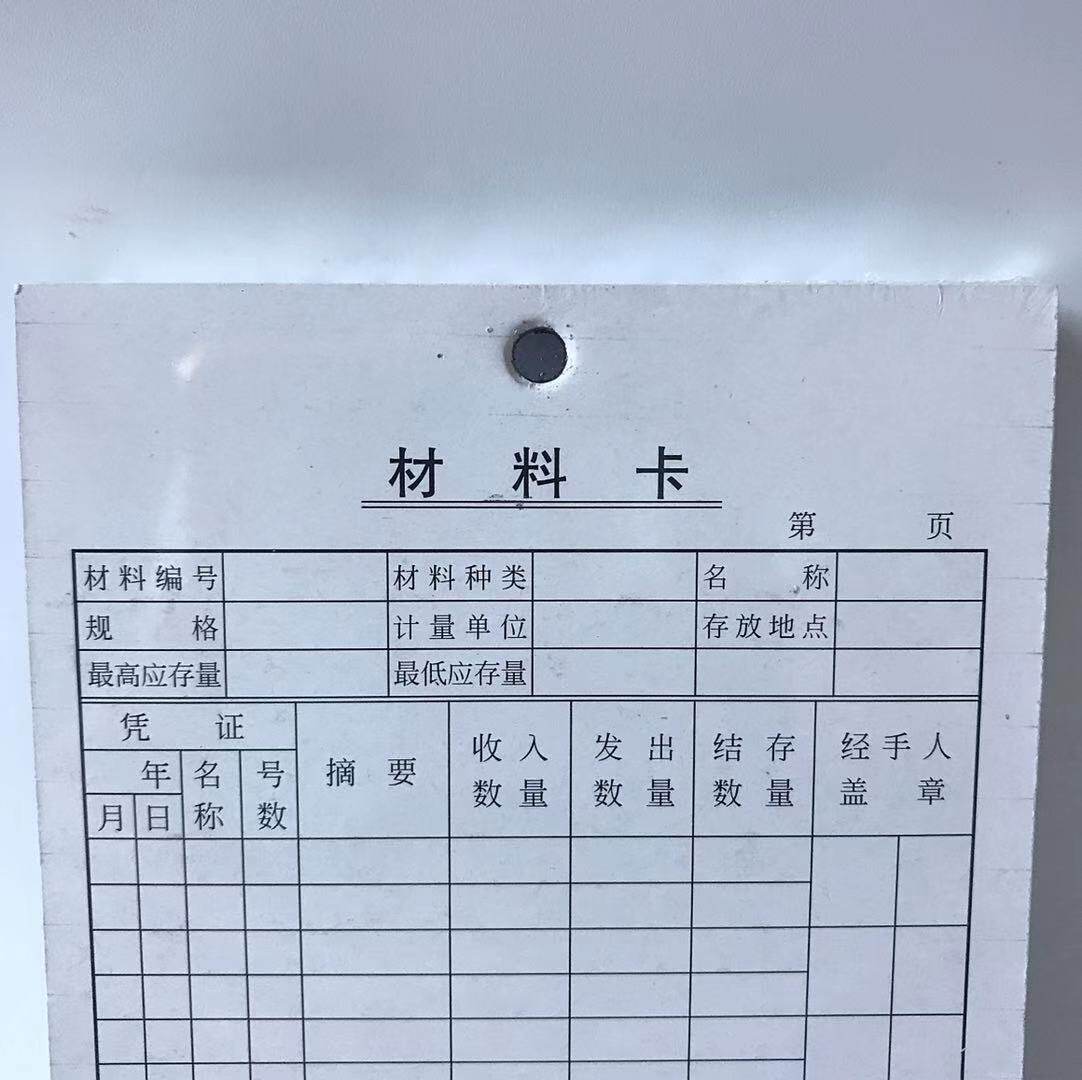 材料卡
第 页
材料编号 材料种类 名称
规格 计量单位 存放地点
最高应存量 最低应存量
凭证 摘要 收入数量 发出数量 结存数量 经手人盖章
年 名称 号数
月 日